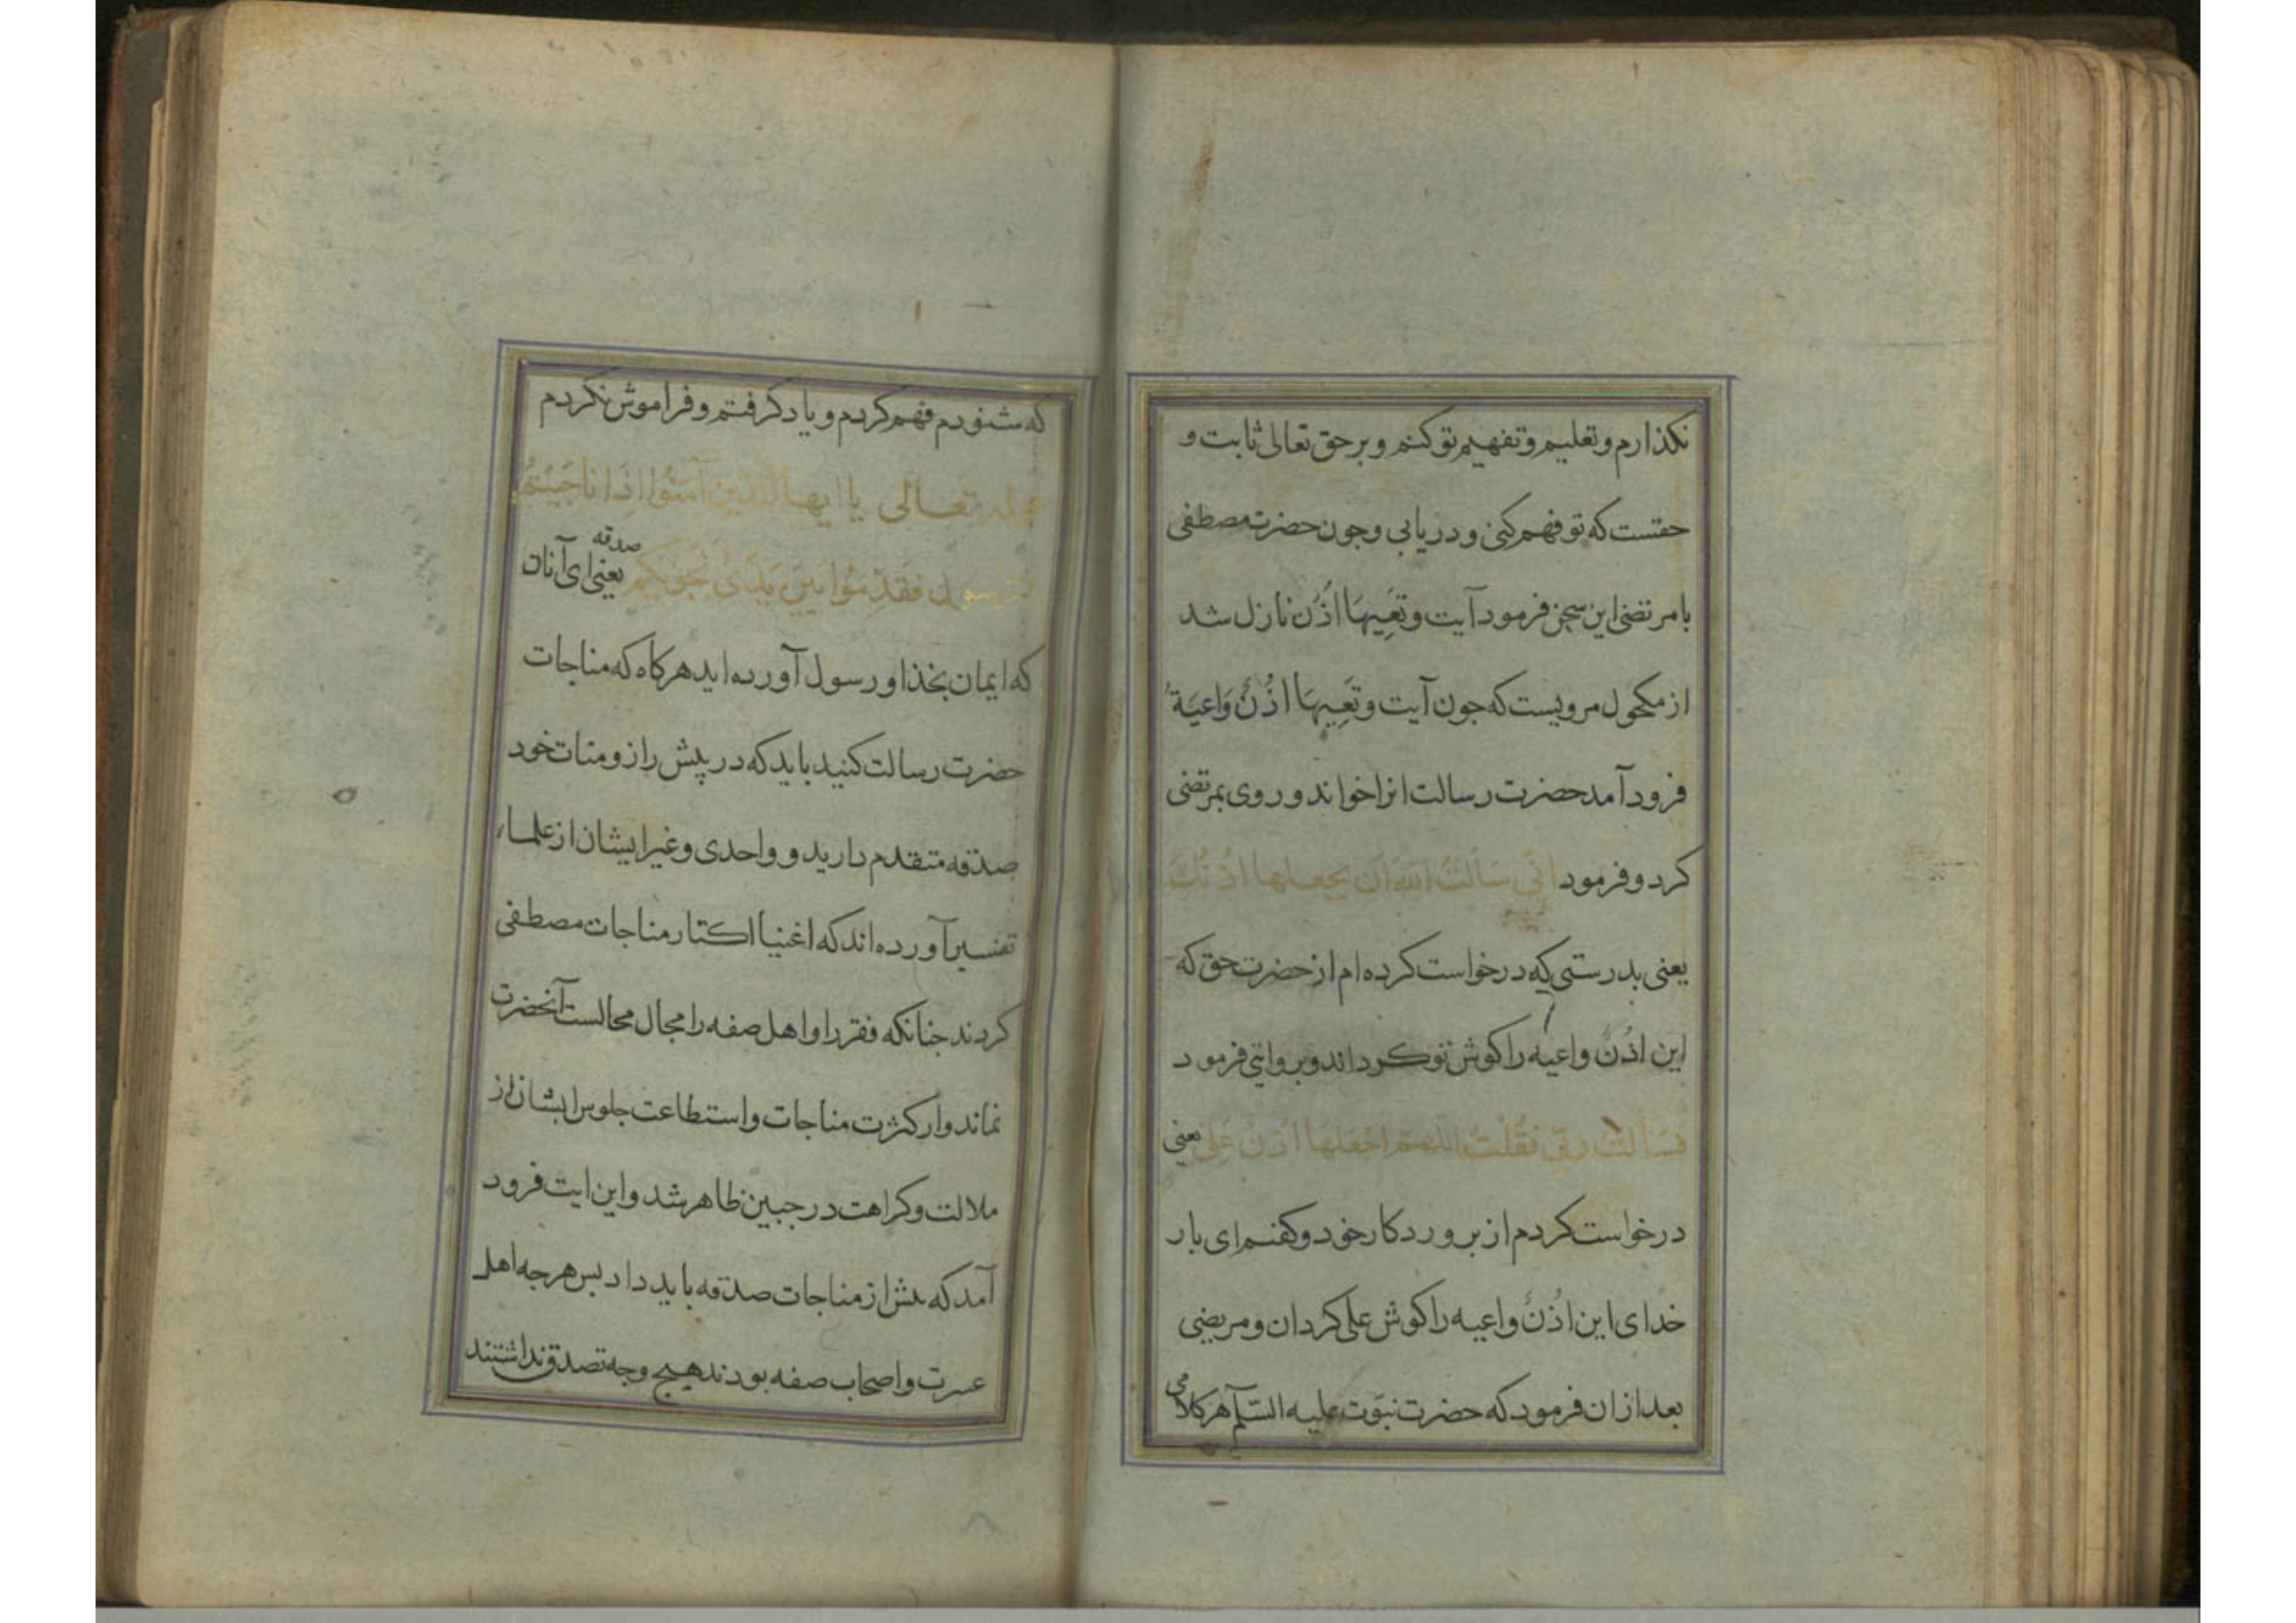 نکذارم و تعلیم و تفهیم تو کنم و بر حق تعالی ثابت و
حقتست که تو فهم کنی و دریابی و جون حضرت مصطفی
با مرتضی این سخن فرمود آیت وتَعِیهَا اُذُن نازل شد
از مکحول مرویست که جون آیت وتَعِیهَا اُذُنٌ وَاعیَةٌ
فرود آمد حضرت رسالت انرا خواند و روی بمرتضی
کرد و فرمود انّی سَاَلتُ اللهَ اَن یجعلها اذنَكَ
یعنی بدرستی که درخواست کرده ام از حضرت حق که
این اذُنٌ واعیه را کوش تو کرداند و بروایتی فرمود
فسَاَلتُ ربّی فقُلتُ اللهم اجْعَلهَا اُذنَ عَلِی یعنی
درخواست کردم از بروردکار خود و کفتم ای بار
خدای این اُذنٌ واعیه را کوش علی کردان و مرتضی
بعد از ان فرمود که حضرت نبوّت علیه السّلم هر کلامی
که شنودم فهم کردم و یاد کرفتم و فراموش نکردم
قوله تعالی یا ایها الذین آمَنُوا اِذَا نَاجَیْتُمُ
الرسول فَقَدِّمُوا بَیْنَ یَدَیْ نَجْوٰیکم صدقه یعنی ای آنان
که ایمان بخذا و رسول آورده اید هرکاه که مناجات
حضرت رسالت کنید باید که در پیش راز و منات خود
صدقه متقدم دارید و واحدی و غیر ایشان از علماء
تفسیر آورده اند که اغنیا اکتار مناجات مصطفی
کردند جنانکه فقرا را و اهل صفه را مجال مجالست آنحضرت
نماند و از کثرت مناجات و استطاعت جلوس ایشان از
ملالت و کراهت در جبین ظاهر شد و این ایت فرود
آمد که بیش از مناجات صدقه باید داد بس هرجه اهل
عسرت و اصحاب صفه بودند هیج وجه تصدق نداشتند